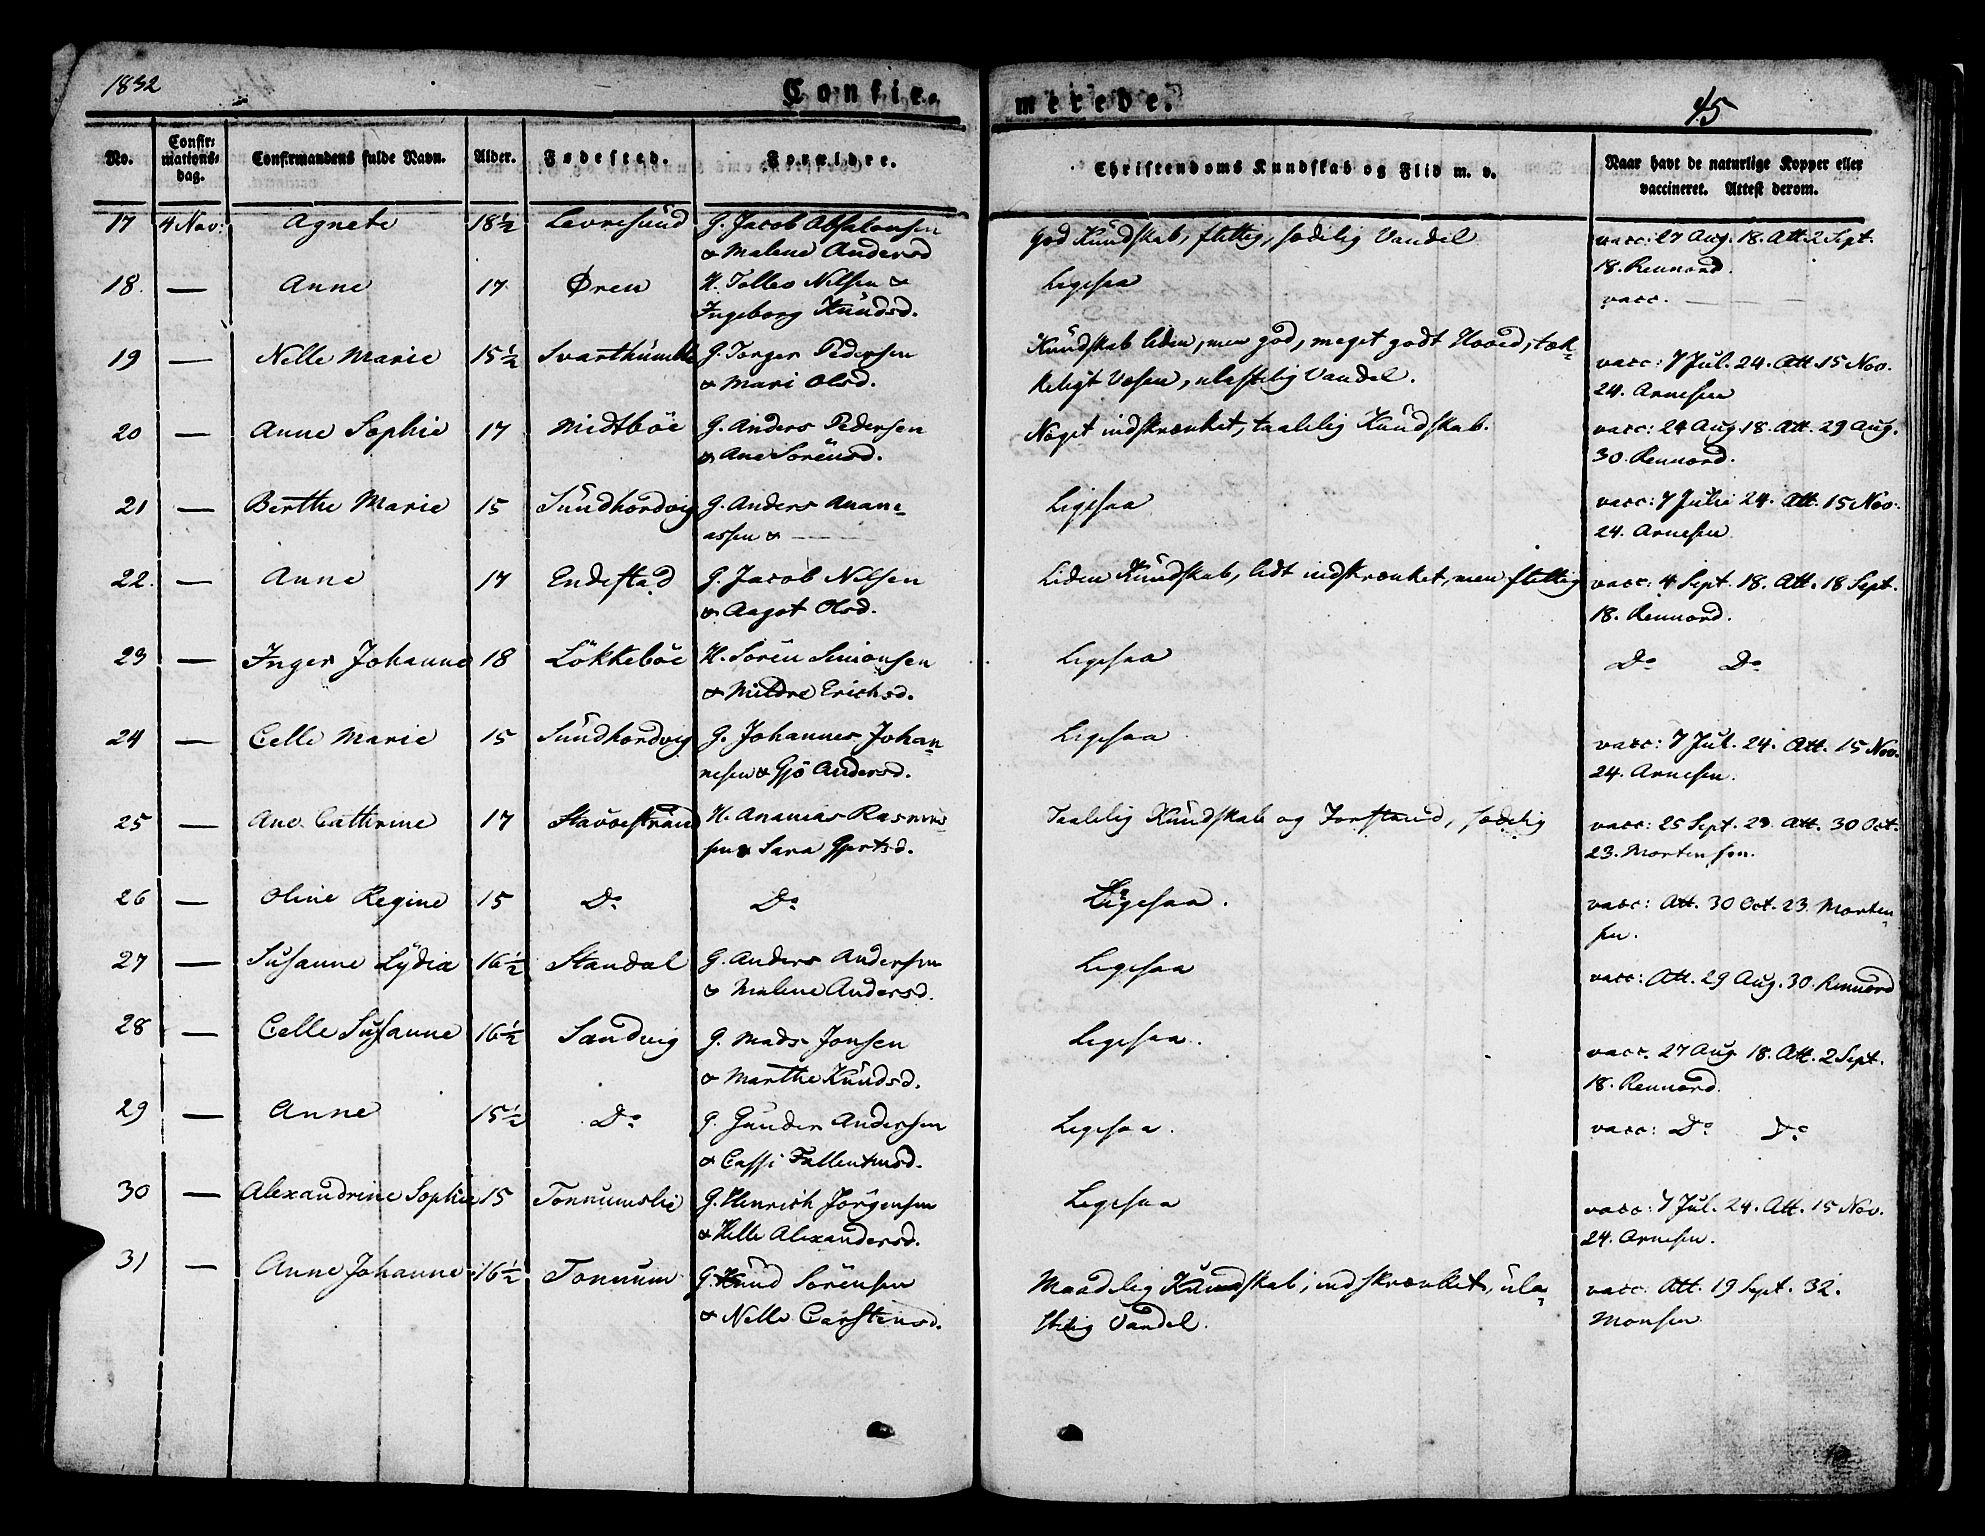 1832 Confir- merede. 45
No. Confir-mations-dag. Confirmandens fulde Navn. Alder. Fødested. Forældre. Christendoms Kundskab og Flid m. v. Naar havt de naturlige Kopper eller vaccineret. Attest derom.
17 4 Nov: Agnete 18½ Levresund G. Jacob Absalonsen God Kundskab, flittig, sædelig Vandel vacc: 27 Aug. 18. Att. 2 Sept.
& Malene Andersd 18. Rennord.
18. — Anne 17 Øren H. Tolles Nilsen & Ligesaa vacc. — — —
Ingeborg Knudsd.
19 — Nille Marie 15½ Svarthumle G. Torger Pedersen Kundskab liden, men god, meget godt Hoved, tæk- vacc: 7 Jul. 24. Att. 15 Nov.
& Mari Olsd. keligt Væsen, ulastelig Vandel. 24. Arnesen
20 — Anne Sophie 17 Midtböe G. Anders Pedersen Noget indskrænket, taalelig Kundskab. vacc: 24 Aug 18. Att. 29 Aug.
& Ane Sörensd. 30. Rennord.
21 — Berthe Marie 15 Sundhordvig G. Anders Anani- Ligesaa vacc: 7 Julii 24. Att. 15 Nov.
assen & — — 24. Arnesen
22. — Anne 17 Endestad G. Jacob Nilsen Liden Kundskab, lidt indskrænket, men flittig vacc: 4 Sept. 18. Att. 18 Sept.
& Aagot Olsd. 18. Rennord.
23 — Inger Johanne 18 Lökkeböe H. Sören Simonsen Ligesaa Do Do
& Mildre Erichsd.
24 — Celle Marie 15 Sundhordvig G. Johannes Johan- Ligesaa vacc: 7 Jul. 24. Att. 15 Nov.
nesen & Gjö Andersd. 24. Arnesen.
25 — Ane Cathrine 17 Stavestrand H. Ananias Rasmus- Taalelig Kundskab og Forstand, sædelig vacc: 25 Sept. 23. Att. 30 Oct.
sen & Sara Gjertsd. 23. Mortensen.
26 — Oline Regine 15 Do Do Ligesaa. vacc: Att. 30 Oct. 23. Morten-
sen.
27 — Susanne Lydia 16½ Standal G. Anders Andersen Ligesaa vacc: Att. 29 Aug. 30. Rennord
& Malene Andersd.
28 — Celle Susanne 16½ Sandvig G. Mads Jonsen Ligesaa. vacc. 27 Aug 18. Att. 2 Sept.
& Marthe Knudsd. 18. Rennord.
29 — Anne 15½ Do G. Gunder Andersen Ligesaa. vacc: Do Do
& Cassi Fallentinsd.
30 — Alexandrine Sophie 15 Tonnumslie G. Henrich Jörgensen Ligesaa vacc: 7 Jul. 24. Att. 15 Nov.
& Helle Alexandersd. 24. Arnesen.
31 — Anne Johanne 16½ Tonnum G. Knud Sörensen Maadelig Kundskab, indskrænket, ula- vacc. Att. 19 Sept. 32.
& Nelle Carstensd. stelig Vandel. Monsen